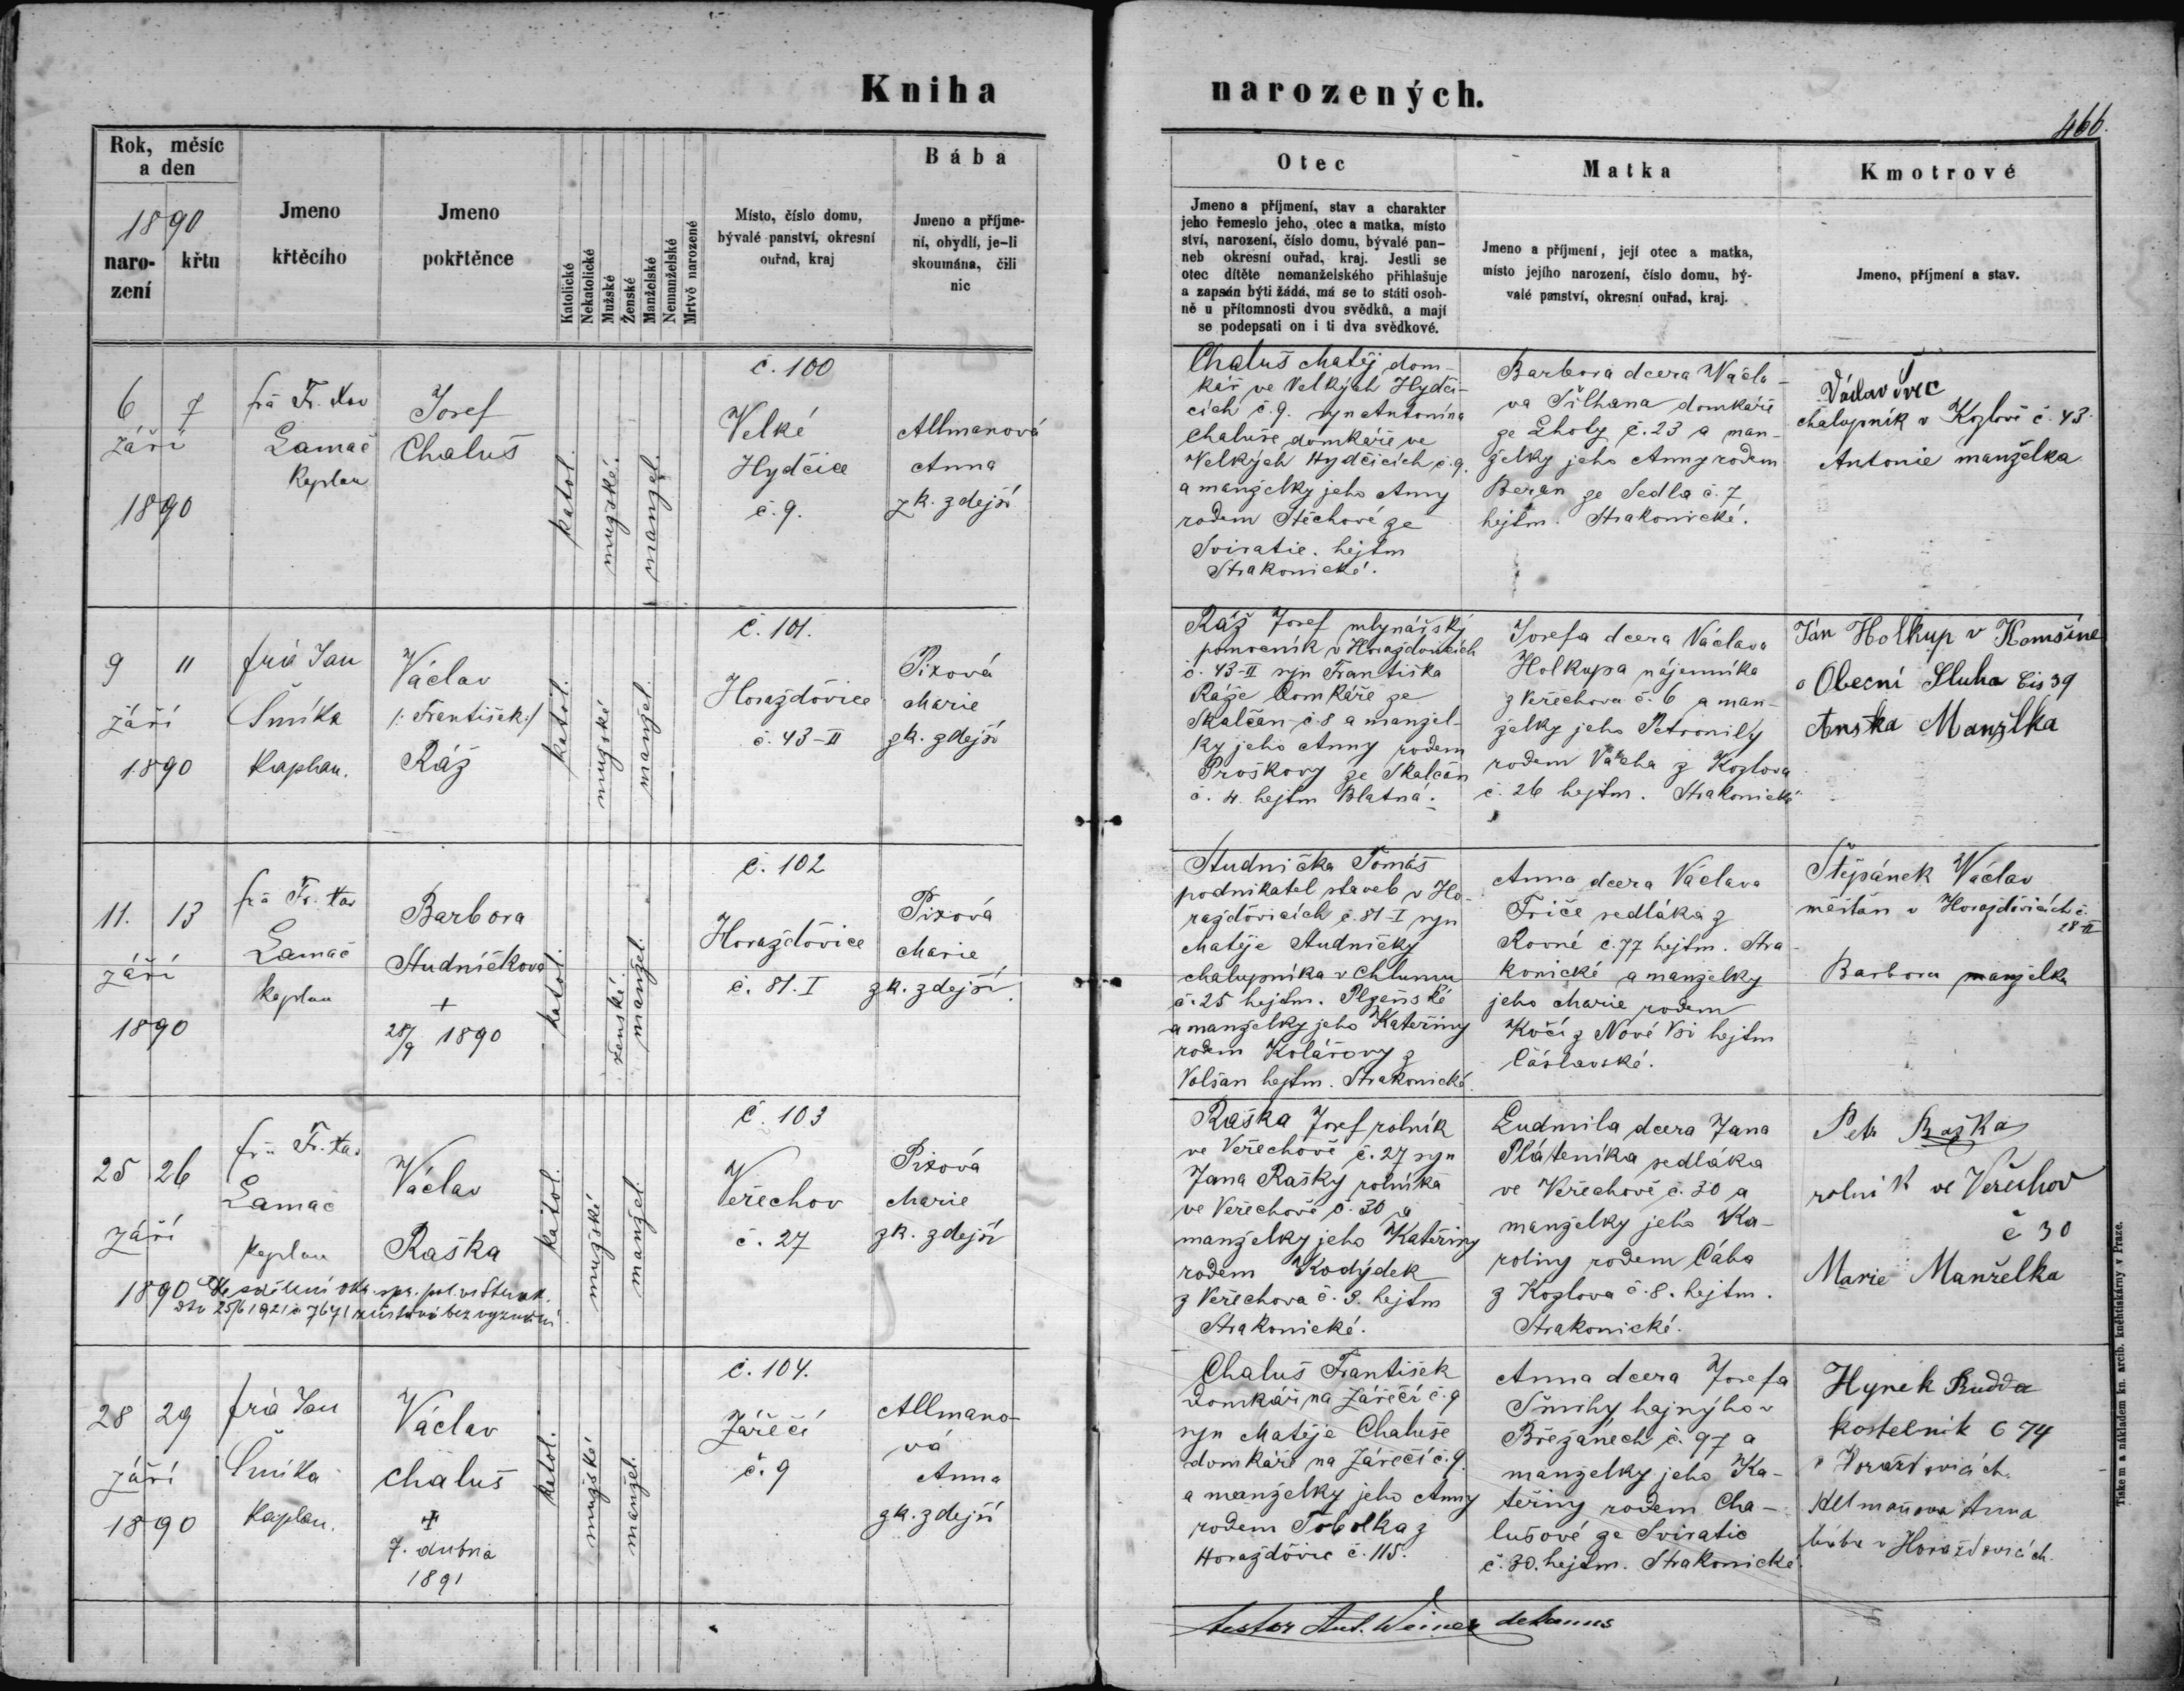 Kniha
narozených.
466.
Rok, měsíc
a den
1890
naro-
zení
křtu
Jmeno
křtěcího
Jmeno
pokřtěnce
Katolické
Nekatolické
Mužské
Ženské
Manželské
Nemanželské
Mrtvě narozené
Místo, číslo domu,
bývalé panství, okresní
ouřad, kraj
Bába
Jmeno a příjme-
ní, obydlí, je-li
skoumána, čili
nic
Otec
Jmeno a příjmení, stav a charakter
jeho řemeslo jeho, otec a matka, místo
ství, narození, číslo domu, bývalé pan-
neb okresní ouřad, kraj. Jestli se
otec dítěte nemanželského přihlašuje
a zapsán býti žádá, má se to státi osob-
ně u přítomnosti dvou svědků, a mají
se podepsati on i ti dva svědkové.
Matka
Jmeno a příjmení, její otec a matka,
místo jejího narození, číslo domu, bý-
valé panství, okresní ouřad, kraj.
Kmotrové
Jmeno, příjmení a stav.
6 7
září
1890
Fr. Xav
Lamač
Kaplan
Josef
Chaluš
katol.
mužské.
manžel.
č. 100
Velké
Hydčice
č. 9.
Allmanová
Anna
zk. zdejší
Chaluš Matěj dom-
kář ve Velkých Hydči-
cích č. 9. syn Antonína
Chaluše domkáře ve
Velkých Hydčicích č. 9.
a manželky jeho Anny
rodem Štěchové ze
Sviratic. hejtm
Strakonické.
Barbora dcera Václa-
va Šilhana domkáře
ze Lhoty č. 23 a man-
želky jeho Anny rodem
Beran ze Sedla č. 7
hejtm. Strakonické.
Václav Švec
chalupník v Kozlově č. 43
Antonie manželka
9 11
září
1890
Jan
Šmíka
Kaplan.
Václav
/: František :/
Ráž
katol.
mužské
manžel.
č. 101.
Horažďovice
č. 43-II
Pixová
Marie
zk. zdejší
Ráž Josef mlynářský
pomocník v Horažďovicích
č. 43-II syn Františka
Ráže domkáře ze
Skalčan č. 8 a manžel-
ky jeho Anny rodem
Proškovy ze Skalčan
č. 4. hejtm Blatná.
Josefa dcera Václava
Holkupa nájemníka
z Veřechova č. 6 a man-
želky jeho Petronily
rodem Vácha z Kozlova
č. 26 hejtm. Strakonické
Ján Holkup v Komšíně
Obecní Sluha čis 39
Manželka
11. 13
září
1890
Fr. Xav
Lamač
Kaplan
Barbora
Studničkova
+
28/9 1890
katol.
ženské.
manžel.
č. 102
Horažďovice
č. 81. I
Pixová
Marie
zk. zdejší.
Studnička Tomáš
podnikatel staveb v Ho-
ražďovicích č. 81-I syn
Matěje Studničky
chalupníka v Chlumu
č. 25 hejtm. Plzeňské
a manželky jeho Kateřiny
rodem Kolářovy z
Volšan hejtm. Strakonické.
Anna dcera Václava
Friče sedláka z
Rovné č. 77 hejtm. Stra-
konické a manželky
jeho Marie rodem
Kočí z Nové Vsi hejtm
Čáslavské.
Štěpánek Václav
měšťan v Horažďovicích č.
28-II
Barbora manželka
25 26
září
1890
Fr. Xav
Lamač
Kaplan
Václav
Raška
25/6 1921 č 7671 bez vyznání
katol.
mužské
manžel.
č. 103
Veřechov
č. 27
Pixová
Marie
zk. zdejší
Raška Josef rolník
ve Veřechově č. 27 syn
Jana Rašky rolníka
ve Veřechově č. 30 a
manželky jeho Kateřiny
rodem Kodýdek
z Veřechova č. 3. hejtm
Strakonické.
Ludmila dcera Jana
Pláteníka sedláka
ve Veřechově č. 30 a
manželky jeho Ka-
roliny rodem Cába
z Kozlova č. 8. hejtm.
Strakonické.
Petr Raška
rolník ve Veřechov
č 30
Marie Manželka
28 29
září
1890
Jan
Šmíka
Kaplan.
Václav
Chaluš
7. dubna
1891
katol.
mužské
manžel.
č. 104.
Zářečí
č. 9
Allmano-
vá
Anna
zk. zdejší
Chaluš František
domkář na Zářečí č. 9
syn Matěje Chaluše
domkáře na Zářečí č. 9.
a manželky jeho Anny
rodem Tobolka z
Horažďovic č. 115.
Anna dcera Josefa
Šmihy hajného v
Břežanech č. 97 a
manželky jeho Ka-
teřiny rodem Cha-
lušové ze Sviratic
č. 30. hejtm. Strakonické
Hynek Rudda
kostelník č 74
v Horažďovicích.
Anna
bába v Horažďovicích.
testor Ant. Weiner dekanus
Tiskem a nákladem kn. arcib. kněhtiskárny v Praze.